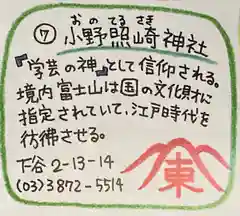 おのてるさき
⑦小野照崎神社
『学芸の神』として信仰される。
境内富士山は国の文化財に
指定されていて、江戸時代を
彷彿させる。
下谷2-13-14
(03)3872-5514
東